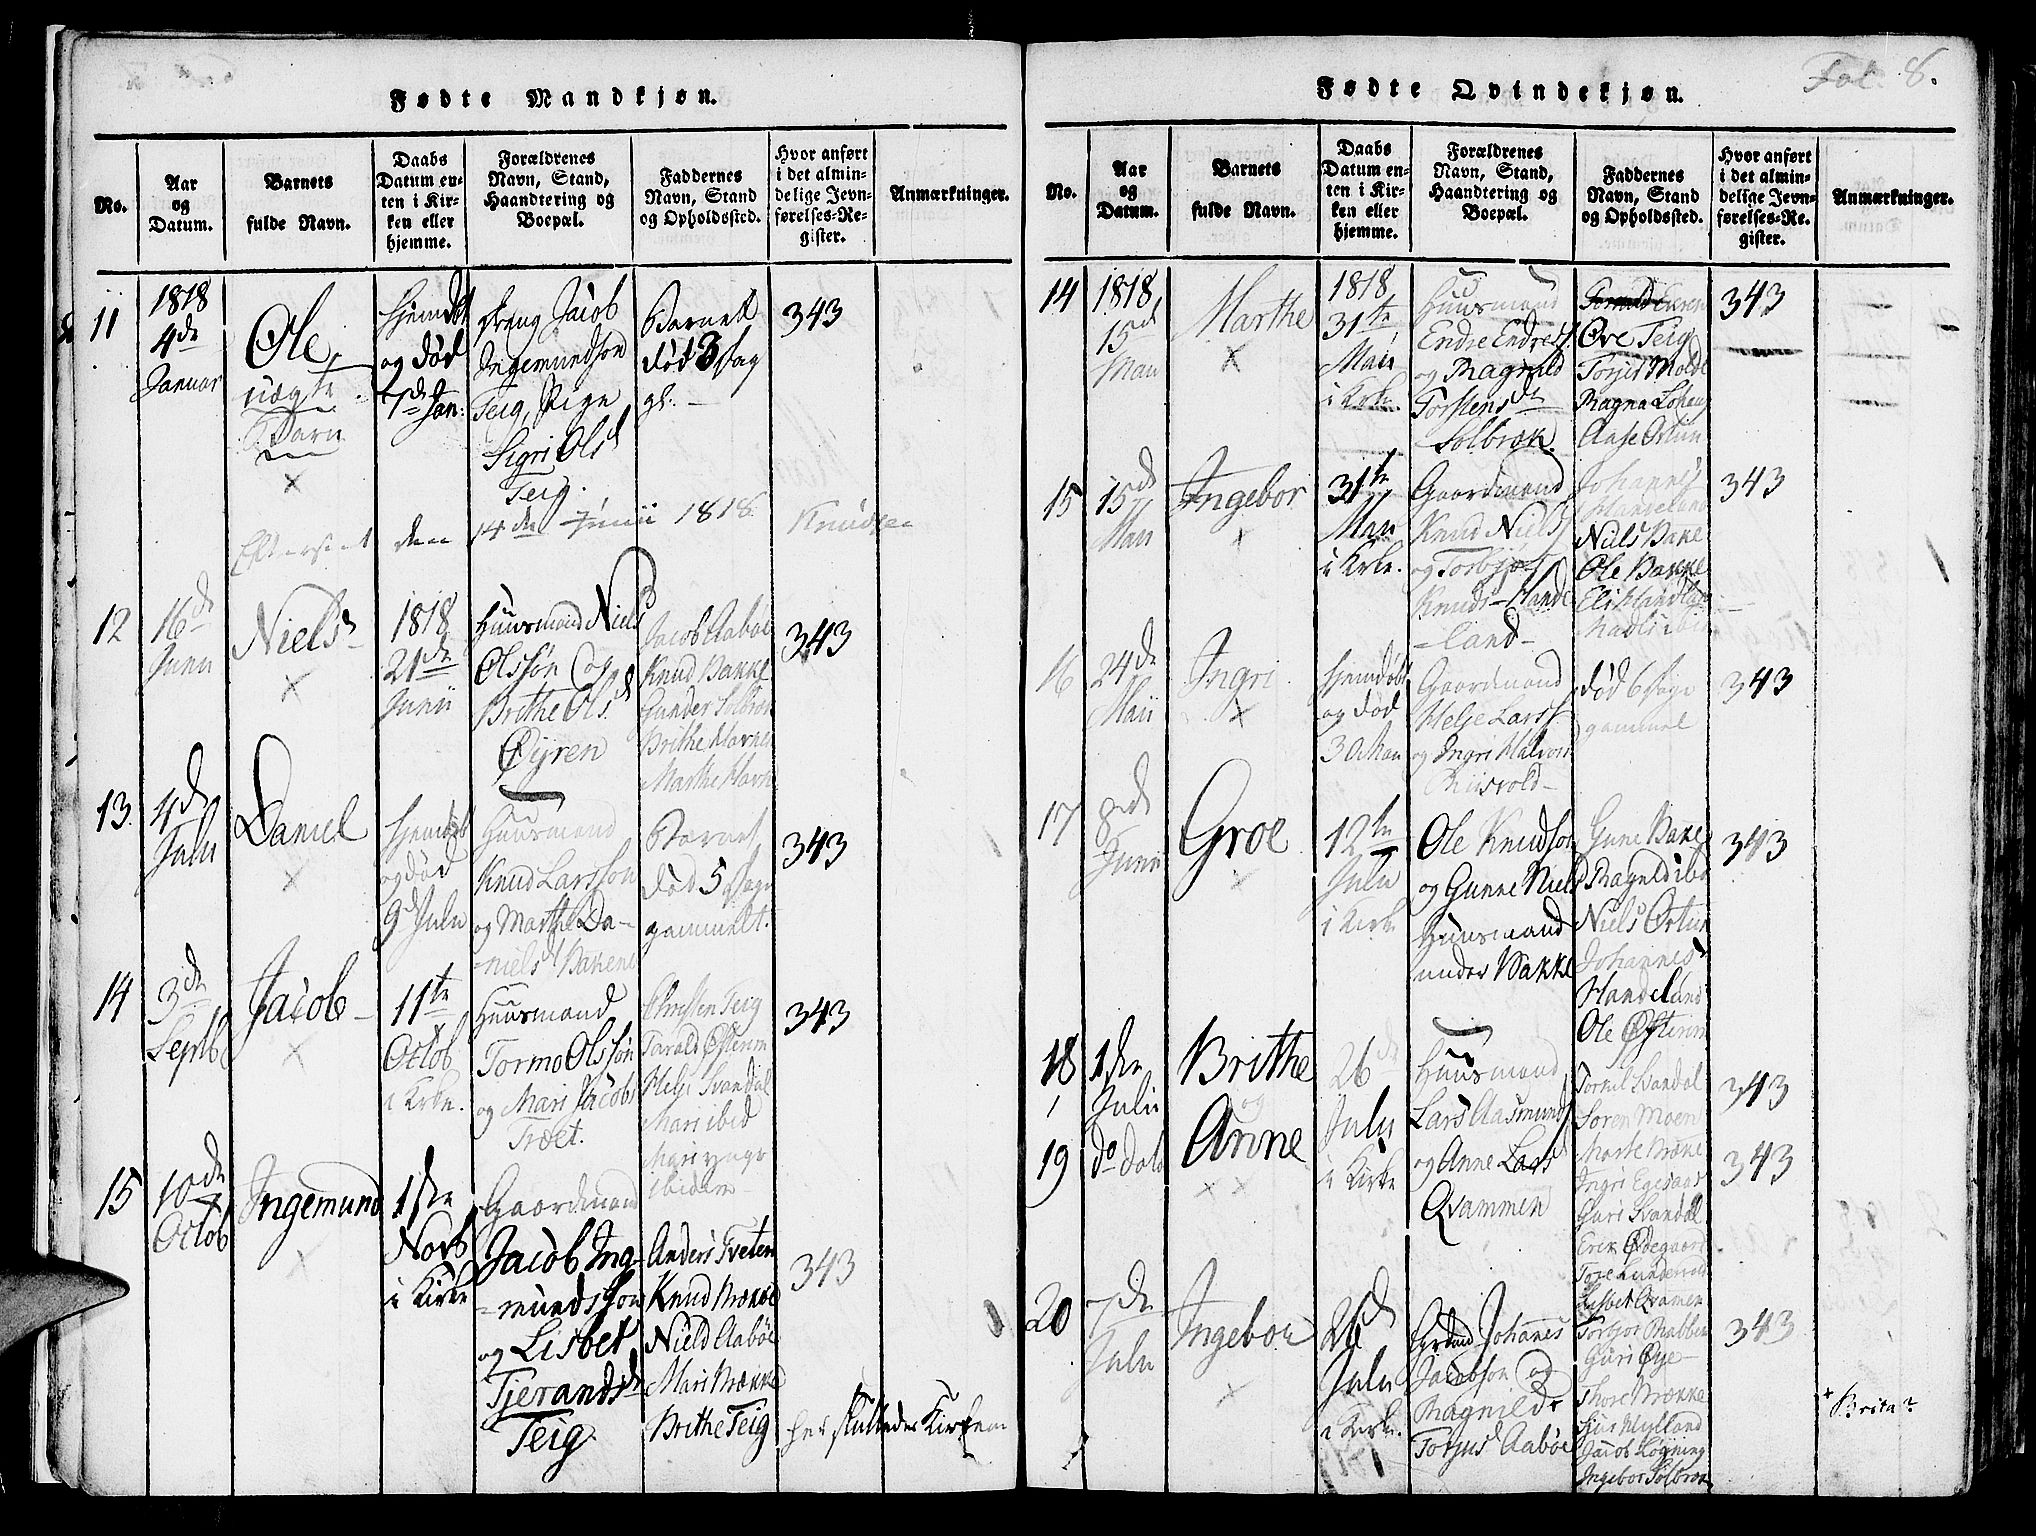 Fødte Mandkjøn.
No.
Aar
og
Datum.
Barnets
fulde Navn.
Daabs
Datum en-
ten i Kir-
ken eller
hjemme.
Forældrenes
Navn, Stand,
Haandtering og
Boepæl.
Faddernes
Navn, Stand
og Opholdssted.
Hvor anført
i det almin-
delige Jevn-
førelses-Re-
gister.
Anmærkninger.
11
1818
4de
Januar
Ole,
uægte
Barn
×
Hjemdøbt
og død
7de Jan:
Dreng Jacob
Ingemundson
Teig, Pige
Sigri Olsd
Teig.
Barnet
død 3 Dag
gl.
343
Efterseet den 14de Junii 1818. Knudsen
12
16de
Junii
Niels
×
1818
21de
Junii
Huusmand Niels
Olssøn og
Brithe Olsd
Øyren
Jacob Aabøe
Knud Bakke
Gunder Solbræk
Brithe Havnen
Marthe Havn
343
13.
4de
Julii
Daniel
×
Hjemdøbt
og død
9d Julii
Huusmand
Knud Larsson
og Marthe Da-
nielsd Bakene
Barnet
død 5 Dage
gammelt.
343
14
3de
Septb
Jacob
×
11te
Octob
i Kirke.
Huusmand
Tormo Olssøn
og Mari Jacobs
Træet.
Christen Teig
Tarald Østerim
Helje Svandal
Mari ibid
Mari yngr
ibidem
343
15
10de
Octob
Ingemund
×
1ste
Novb
i Kirke
Gaardmand
Jacob Ing-
mundsson
og Lisbet
Tjerandsd
Teig
Anders Tveten
Knud Brække
Nield Aabøe
Mari Brække
Brithe Teig
343
her sluttedes Kirken
Fødte Qvindekjøn.
Fol. 8.
No.
Aar
og
Datum.
Barnets
fulde Navn.
Daabs
Datum en-
ten i Kir-
ken eller
hjemme.
Forældrenes
Navn, Stand,
Haandtering og
Boepæl.
Faddernes
Navn, Stand
og Opholdssted.
Hvor anført
i det almin-
delige Jevn-
førelses-Re-
gister.
Anmærkninger.
14
1818
15de
Maii
Marthe
×
1818
31te
Maii
i Kirke.
Huusmand
Endre Endres.
og Ragnild
Torstensdt
Solbræk.
Ove Teig
Torjer Molde
Ragna Løhng
Aase Østun
343
15
15de
Maii
Ingebor
×
31te
Maii
i Kirke.
Gaardmand
Knud Niels
og Torbjør
Knuds- Hande
-land-
Johannes
Handeland
Niels Bake
Ole Bakke
Eli Handlan
343
16
24de
Maii
Ingri
×
Hjemdøbt
og død
30 Maii
Gaardmand
Helje Larss
og Ingri Halvor
Riisvold-
død 6 Dage
gammel
343
17
8de
Junii
Groe
×
12te
Julii
i Kirke
Ole Knudson
og Gunne Nielsd
Huusmand
under Bakke
Gune Bake
Ragneld ibd
Niels Østun
Johannes
Handeland
Ole Østerim
343
18
1ste
Julii
Brithe
og
26de
Julii
i Kirke
Huusmand
Lars Aasmunds
og Anne Larsd
Qvammen
Tormil Svandal
Søren Moen
Marte Brække
Ingri Egesaas
Guri Svandal
Erik Ødegaard
Tore Lundemoe
Lisbet Qvamen
343
19
do Dato
Anne
× ×
343
20
7de
Julii
Ingebor
×
26d
Julii
i Kirke.
Grdmd Johannes
Jacobson og
Ragnilde
Torjusd Aabøe
Torbjor Rabben
Guri Øye
Thore Brække
Sjur Mylland
Jacob Løgning
Ingebor Solbræk
343
* Brita?